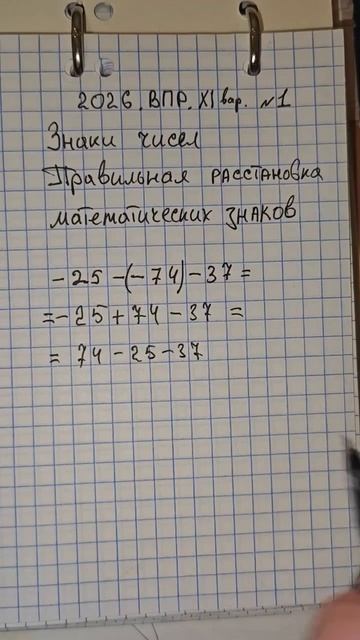 2026. ВПР. XI вар. №1
Знаки чисел
Правильная расстановка
математических знаков
-25-(-74)-37=
=-25+74-37 =
= 74-25-37